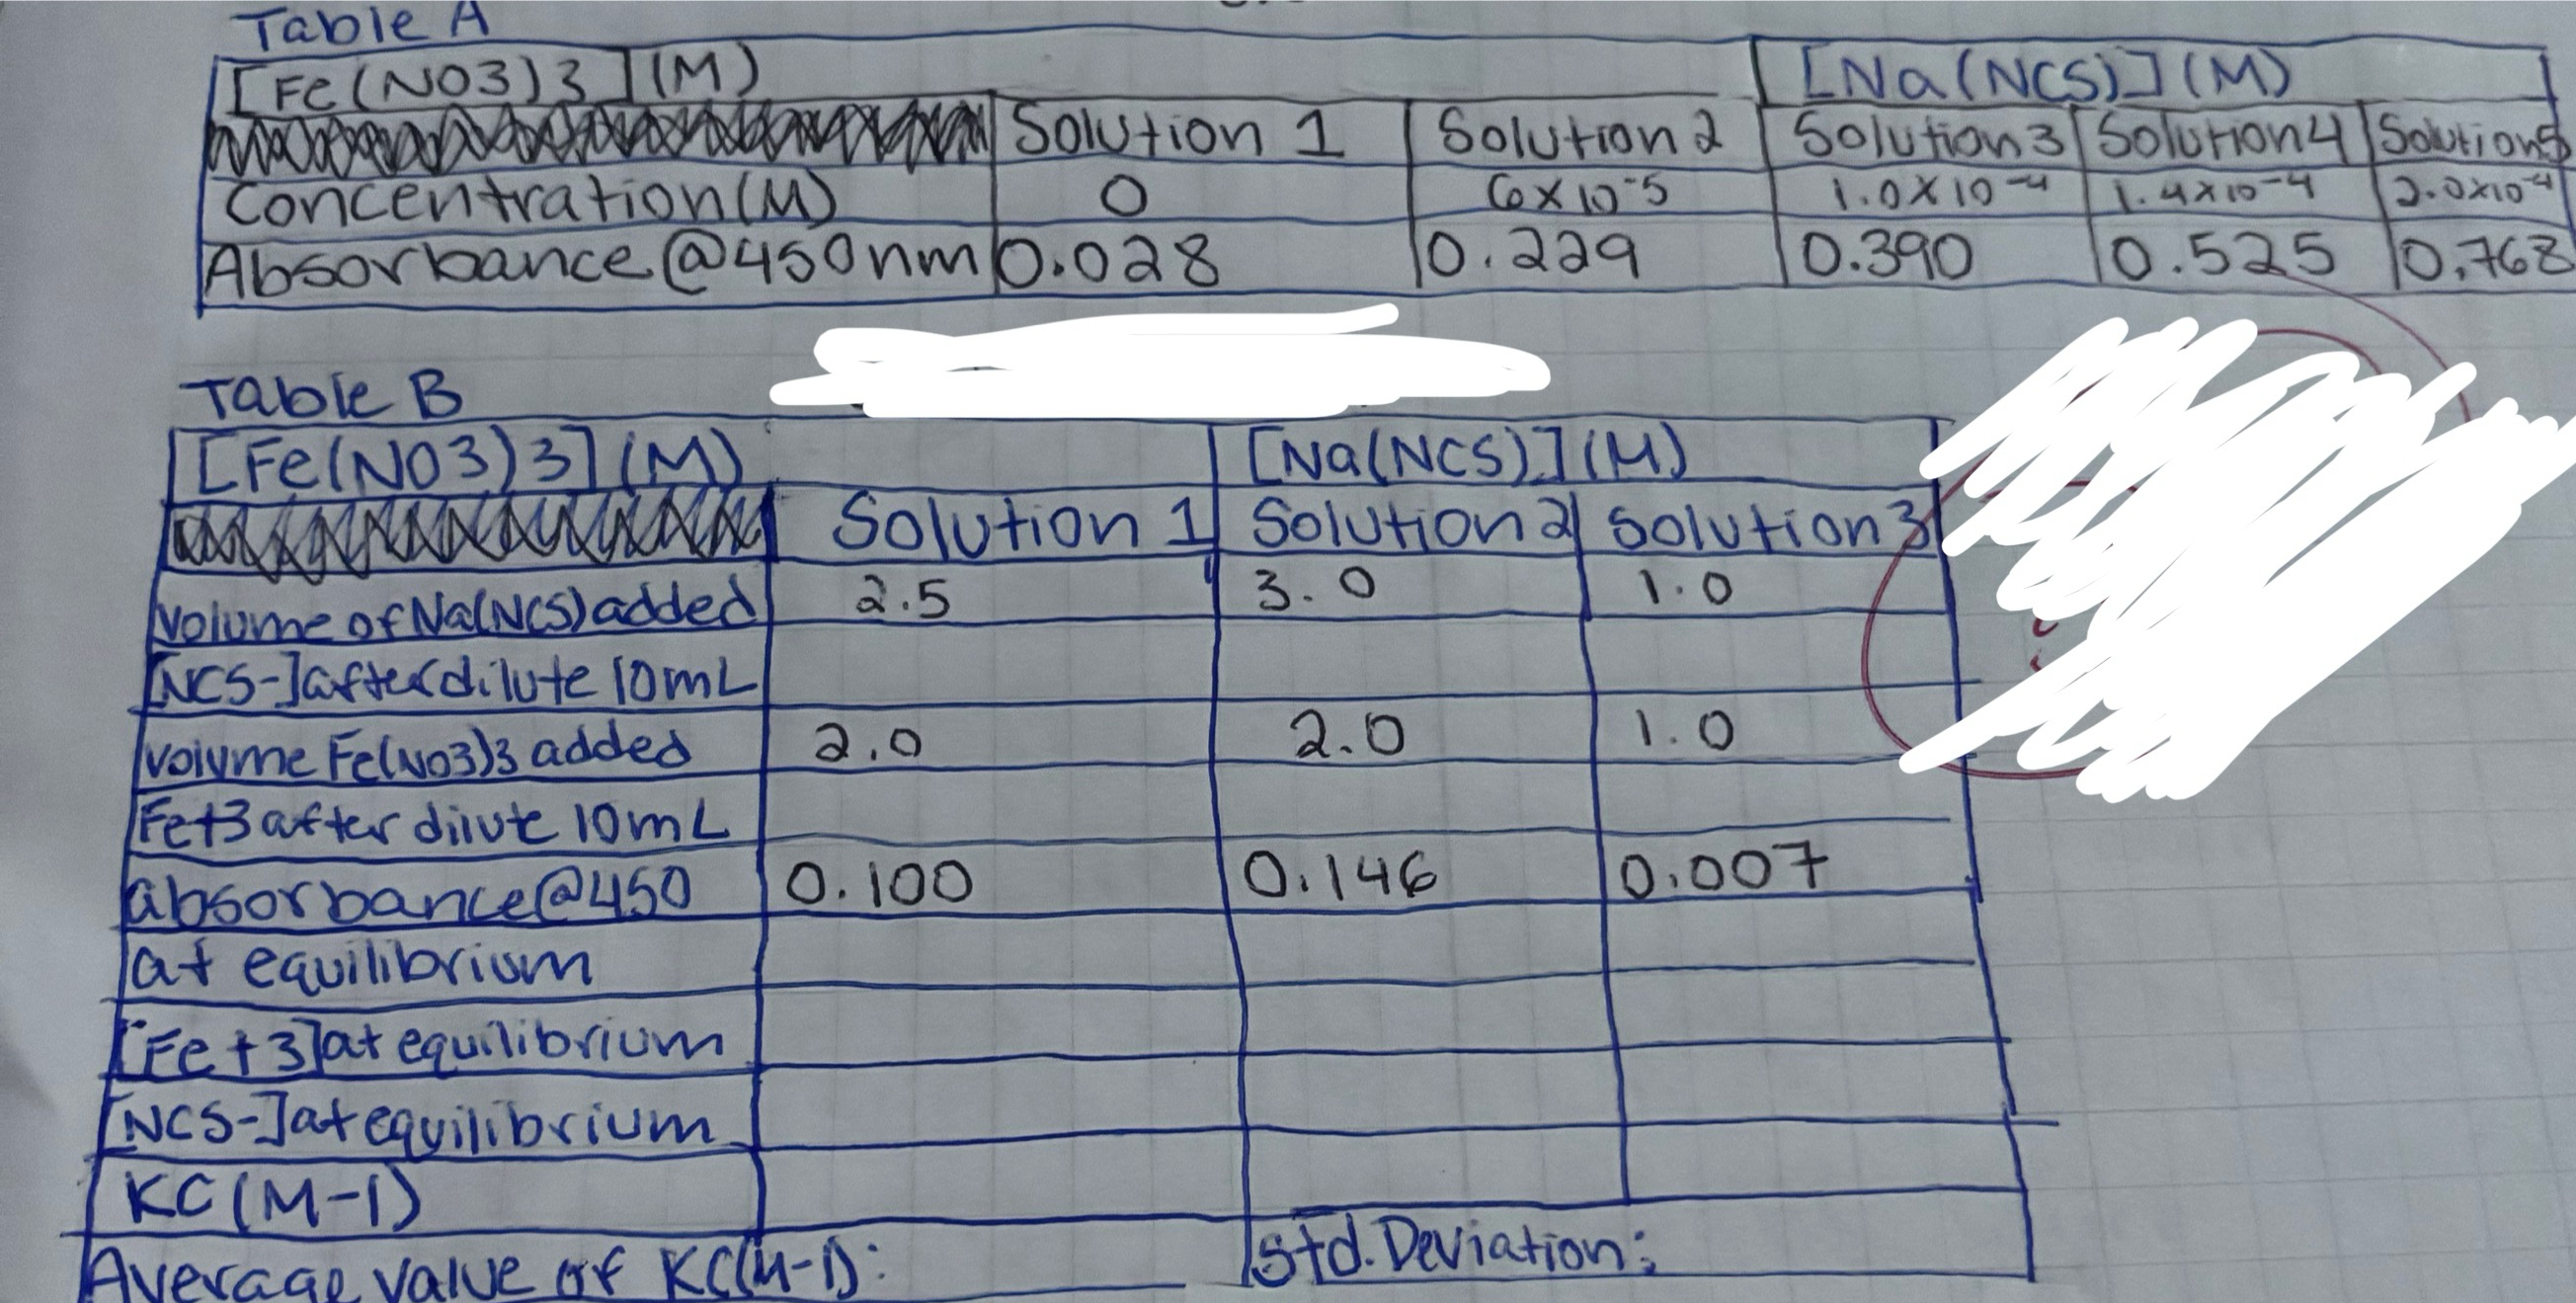 Table A
[Fe(NO3)3](M) [Na(NCS)](M)
Solution 1 Solution 2 Solution3 Solution4 Solution5
Concentration(M) 0 6X10-5 1.0X10-4 1.4X10-4 2.0X10-4
Absorbance@450nm 0.028 0.229 0.390 0.525 0.768
Table B
[Fe(NO3)3](M) [Na(NCS)](M)
Solution 1 Solution2 Solution3
volume of Na(NCS)added 2.5 3.0 1.0
[NCS-]after dilute 10mL
volyme Fe(NO3)3 added 2.0 2.0 1.0
Fe+3 after dilute 10mL
absorbance@450 0.100 0.146 0.007
at equilibrium
[Fe+3]at equilibrium
[NCS-]at equilibrium
KC(M-1)
Average value of KC(M-1): Std. Deviation: